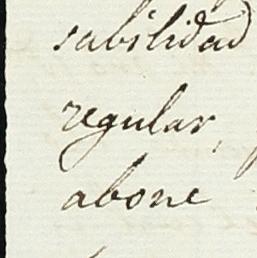 sabilidad
regular,
abone